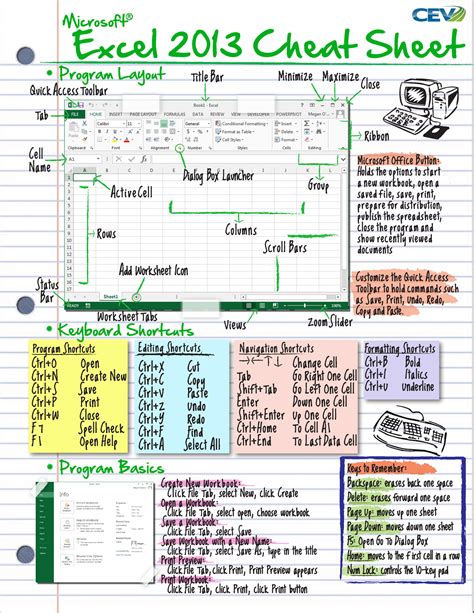 CEV
Microsoft®
Excel 2013 Cheat Sheet
• Program Layout
Quick Access Toolbar
Title Bar
Minimize
Maximize
Close
Tab
Ribbon
Cell
Name
Book1 - Excel
FILE HOME INSERT PAGE LAYOUT FORMULAS DATA REVIEW VIEW
Calibri
General
Conditional Formatting
Format as Table
Cell Styles
Insert
Delete
Format
Paste
Clipboard
Font
Alignment
Number
Styles
Cells
Editing
A1
Dialog Box Launcher
Group
Active Cell
Rows
Columns
Scroll Bars
Add Worksheet Icon
Status
Bar
Sheet1
READY
Worksheet Tabs
Views
Zoom Slider
Microsoft Office Button:
Holds the options to start
a new workbook, open a
saved file, save, print,
prepare for distribution,
publish the spreadsheet,
close the program and
show recently viewed
documents
Customize the Quick Access
Toolbar to hold commands such
as Save, Print, Undo, Redo,
Copy and Paste.
• Keyboard Shortcuts
Program Shortcuts
Ctrl+O Open
Ctrl+N Create New
Ctrl+S Save
Ctrl+P Print
Ctrl+W Close
F7 Spell Check
F1 Open Help
Editing Shortcuts
Ctrl+X Cut
Ctrl+C Copy
Ctrl+V Paste
Ctrl+Z Undo
Ctrl+Y Redo
Ctrl+F Find
Ctrl+A Select All
Navigation Shortcuts
←↑→↓ Change Cell
Tab Go Right One Cell
Shift+Tab Go Left One Cell
Enter Down One Cell
Shift+Enter Up One Cell
Ctrl+Home To Cell A1
Ctrl+End To Last Data Cell
Formatting Shortcuts
Ctrl+B Bold
Ctrl+I Italics
Ctrl+U Underline
• Program Basics
Info
Create New Workbook:
Click File Tab, select New, click Create
Open a Workbook:
Click File Tab, select open, choose workbook
Save a Workbook:
Click File Tab, select Save
Save Workbook with a New Name:
Click File Tab, select Save As, type in the title
Print Preview:
Click File Tab, click Print, Print Preview appears
Print Workbook:
Click File Tab, click Print, click Print button
Keys to Remember:
Backspace: erases back one space
Delete: erases forward one space
Page Up: moves up one sheet
Page Down: moves down one sheet
F5: Open Go To Dialog Box
Home: moves to the first cell in a row
Num Lock: controls the 10-key pad